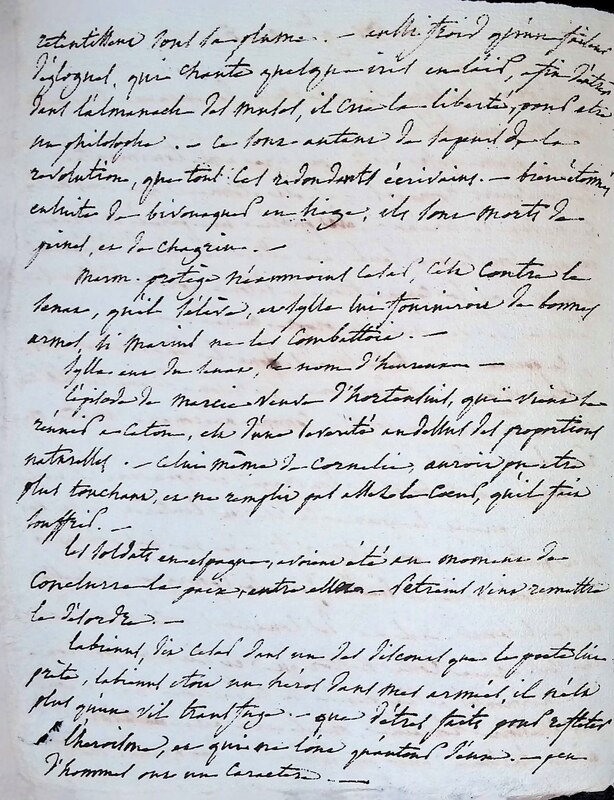 retentissent sous sa plume. — enlli froid qu'un faiseur
d'églogues, qui chante quelque iris en l'air, afin d'être
dans l'almanach des muses, il crie la liberté, pour être
un philosophe. — ce sont autant de tapeurs de la
revolution, que tous ces redondants écrivains. — bien étonnés
ensuite de bivouaques en neige, ils sont morts de
peines, et de chagrin. —
Marm. protège néanmoins Cesar, c'est contre le
senat, qu'il s'élève, et Sylla lui fourniroit de bonnes
armes, si Marius ne les combattoit. —
Sylla eut du senat, le nom d'heureux —
l'épisode de Marcie veuve d'hortensius, qui vient se
réunir à Caton, est d'une severité au dessus des proportions
naturelles. — celui même de Cornelie, auroit pu etre
plus touchant, et ne remplit pas assez le coeur, qu'il fait
souffrir. —
les soldats en espagne, avoient été au moment de
conclurre la paix, entre eux — Petreius vint remettre
le désordre. —
labienus, dit Cesar dans un des discours que le poete lui
prête, labienus etoit un héros dans mes armées, il n'est
plus qu'un vil transfuge. — que d'êtres faits pour refleter
l'heroïsme, et qui ne sont qu'autour d'eux. — peu
d'hommes ont un caractere. —